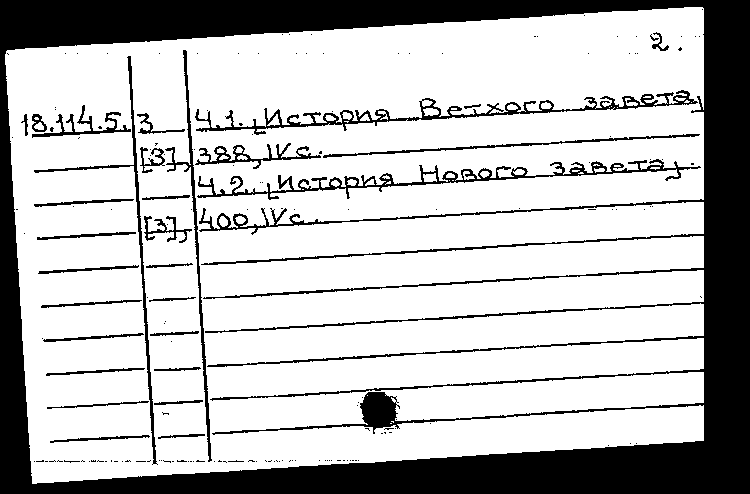 2.
18.114.5.3 Ч.1. [История Ветхого завета]
[3], 388, IV с.
Ч.2. [История Нового завета].
[3], 400, IV с.